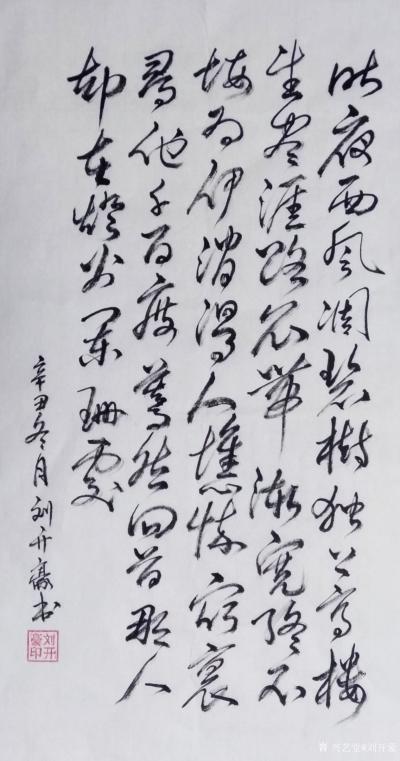 昨夜西风凋碧樹独上高楼
望尽涯路衣带渐宽终不
悔为伊消得人憔悴眾裏
尋他千百度蓦然回首那人
却在燈火阑珊處
辛丑冬月刘开豪书
刘开豪印
兴艺堂#刘开豪